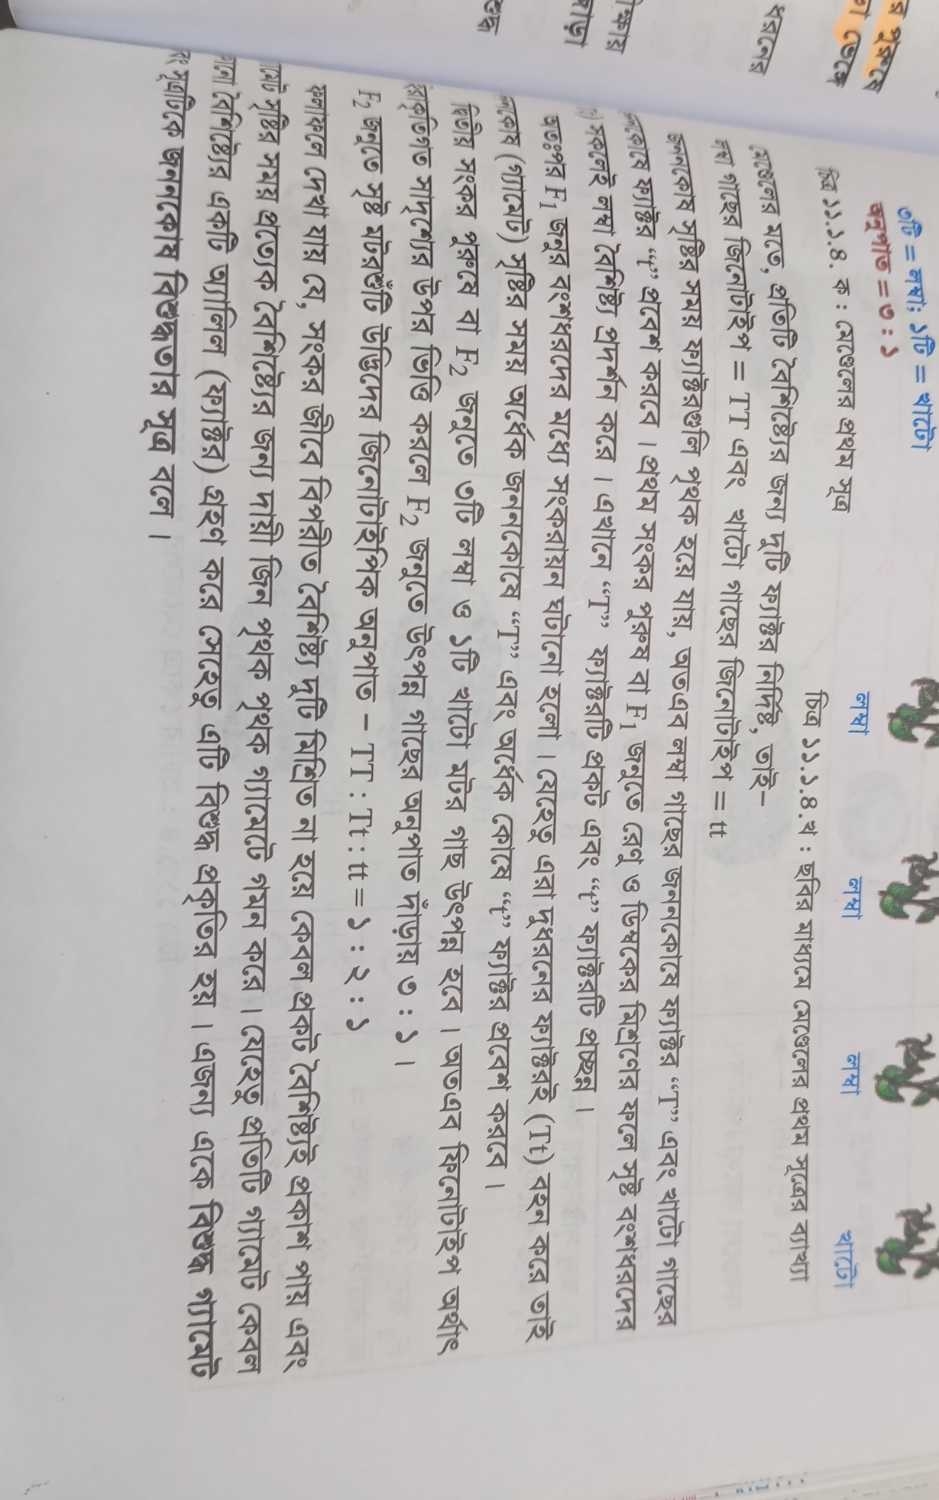 ৩টি = লম্বা; ১টি = খাটো
অনুপাত = ৩ : ১
লম্বা লম্বা লম্বা খাটো
চিত্র ১১.১.৪. ক : মেন্ডেলের প্রথম সূত্র
চিত্র ১১.১.৪.খ : ছবির মাধ্যমে মেন্ডেলের প্রথম সূত্রের ব্যাখ্যা
মেন্ডেলের মতে, প্রতিটি বৈশিষ্ট্যের জন্য দুটি ফ্যাক্টর নির্দিষ্ট, তাই–
লম্বা গাছের জিনোটাইপ = TT এবং খাটো গাছের জিনোটাইপ = tt
জননকোষ সৃষ্টির সময় ফ্যাক্টরগুলি পৃথক হয়ে যায়, অতএব লম্বা গাছের জননকোষে ফ্যাক্টর “T” এবং খাটো গাছের
ফ্যাক্টর “t” প্রবেশ করবে। প্রথম সংকর পুরুষ বা F₁ জনুতে রেণু ও ডিম্বকের মিশ্রণের ফলে সৃষ্ট বংশধরদের
সকলেই লম্বা বৈশিষ্ট্য প্রদর্শন করে। এখানে “T” ফ্যাক্টরটি প্রকট এবং “t” ফ্যাক্টরটি প্রচ্ছন্ন।
অতঃপর F₁ জনুর বংশধরদের মধ্যে সংকরায়ন ঘটানো হলো। যেহেতু এরা দুধরনের ফ্যাক্টরই (Tt) বহন করে তাই
(গ্যামেট) সৃষ্টির সময় অর্ধেক জননকোষে “T” এবং অর্ধেক কোষে “t” ফ্যাক্টর প্রবেশ করবে।
দ্বিতীয় সংকর পুরুষে বা F₂ জনুতে ৩টি লম্বা ও ১টি খাটো মটর গাছ উৎপন্ন হবে। অতএব ফিনোটাইপ অর্থাৎ
সাদৃশ্যের উপর ভিত্তি করলে F₂ জনুতে উৎপন্ন গাছের অনুপাত দাঁড়ায় ৩ : ১।
F₂ জনুতে সৃষ্ট মটরশুঁটি উদ্ভিদের জিনোটাইপিক অনুপাত – TT : Tt : tt = ১ : ২ : ১
ফলাফলে দেখা যায় যে, সংকর জীবে বিপরীত বৈশিষ্ট্য দুটি মিশ্রিত না হয়ে কেবল প্রকট বৈশিষ্ট্যই প্রকাশ পায় এবং
সৃষ্টির সময় প্রত্যেক বৈশিষ্ট্যের জন্য দায়ী জিন পৃথক পৃথক গ্যামেটে গমন করে। যেহেতু প্রতিটি গ্যামেট কেবল
বৈশিষ্ট্যের একটি অ্যালিল (ফ্যাক্টর) গ্রহণ করে সেহেতু এটি বিশুদ্ধ প্রকৃতির হয়। এজন্য একে বিশুদ্ধ গ্যামেট
সূত্রটিকে জননকোষ বিশুদ্ধতার সূত্র বলে।